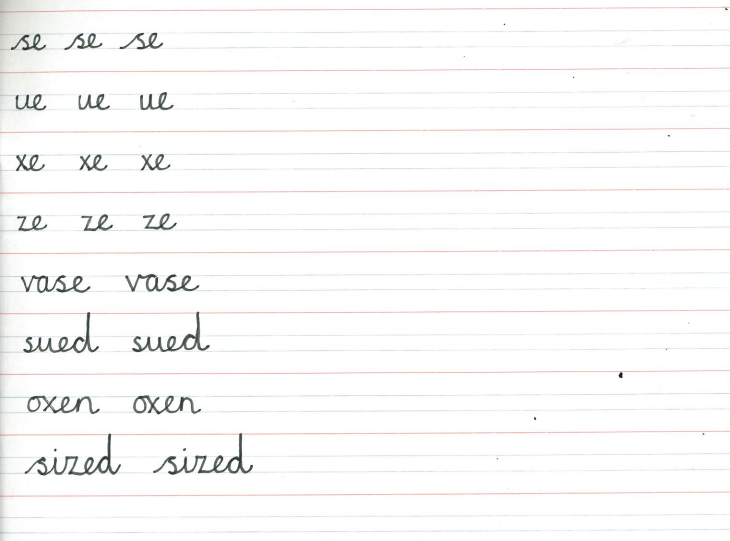 se se se
ue ue ue
xe xe xe
ze ze ze
vase vase
sued sued
oxen oxen
sized sized